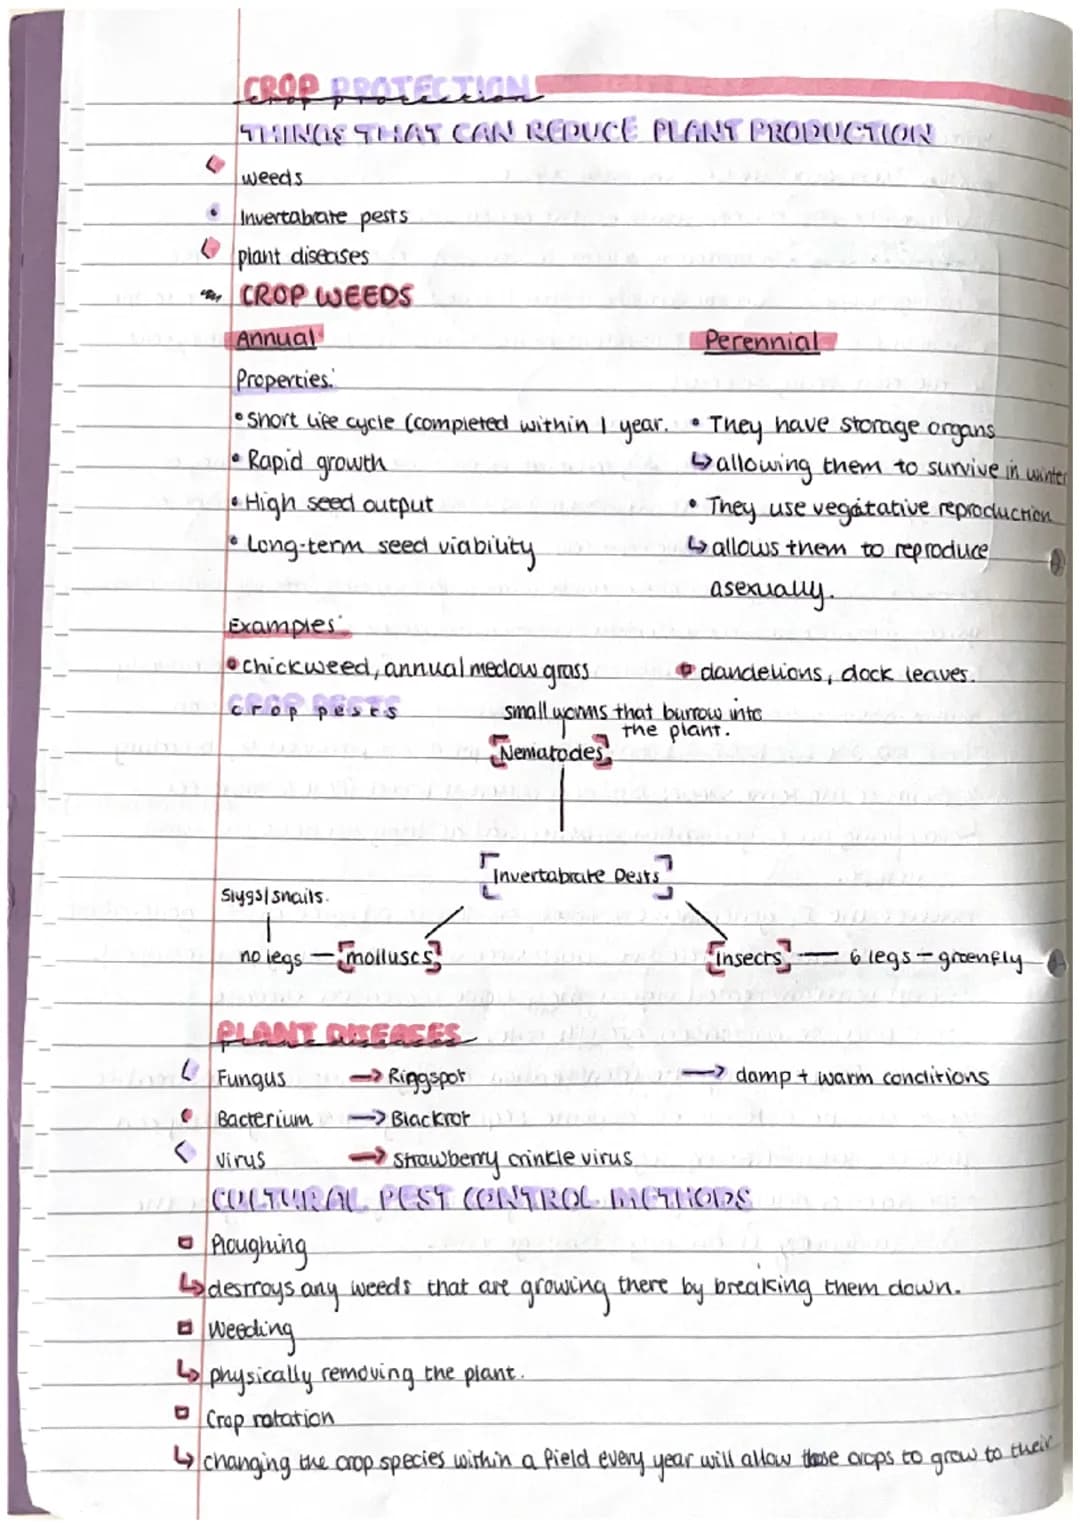 CROP PROTECTION
THINGS THAT CAN REDUCE PLANT PRODUCTION
weeds
Invertabrate pests
plant diseases
CROP WEEDS
Annual Perennial
Properties:
• Short life cycle (completed within 1 year. • They have storage organs
• Rapid growth ↳ allowing them to survive in winter
• High seed output • They use vegatative reproduction
• Long-term seed viability ↳ allows them to reproduce
asexually.
Examples:
• chickweed, annual medow grass • dandelions, dock leaves.
crop pests small worms that burrow into
the plant.
Nematodes
Invertabrate Pests
Slugs/snails.
no legs — molluscs insects — 6 legs – greenfly
PLANT DISEASES
Fungus → Ringspot → damp + warm conditions
• Bacterium → Blackrot
Virus → Strawberry crinkle virus
CULTURAL PEST CONTROL METHODS
Ploughing
↳ destroys any weeds that are growing there by breaking them down.
Weeding
↳ physically removing the plant.
Crop rotation
↳ changing the crop species within a field every year will allow those crops to grow to their